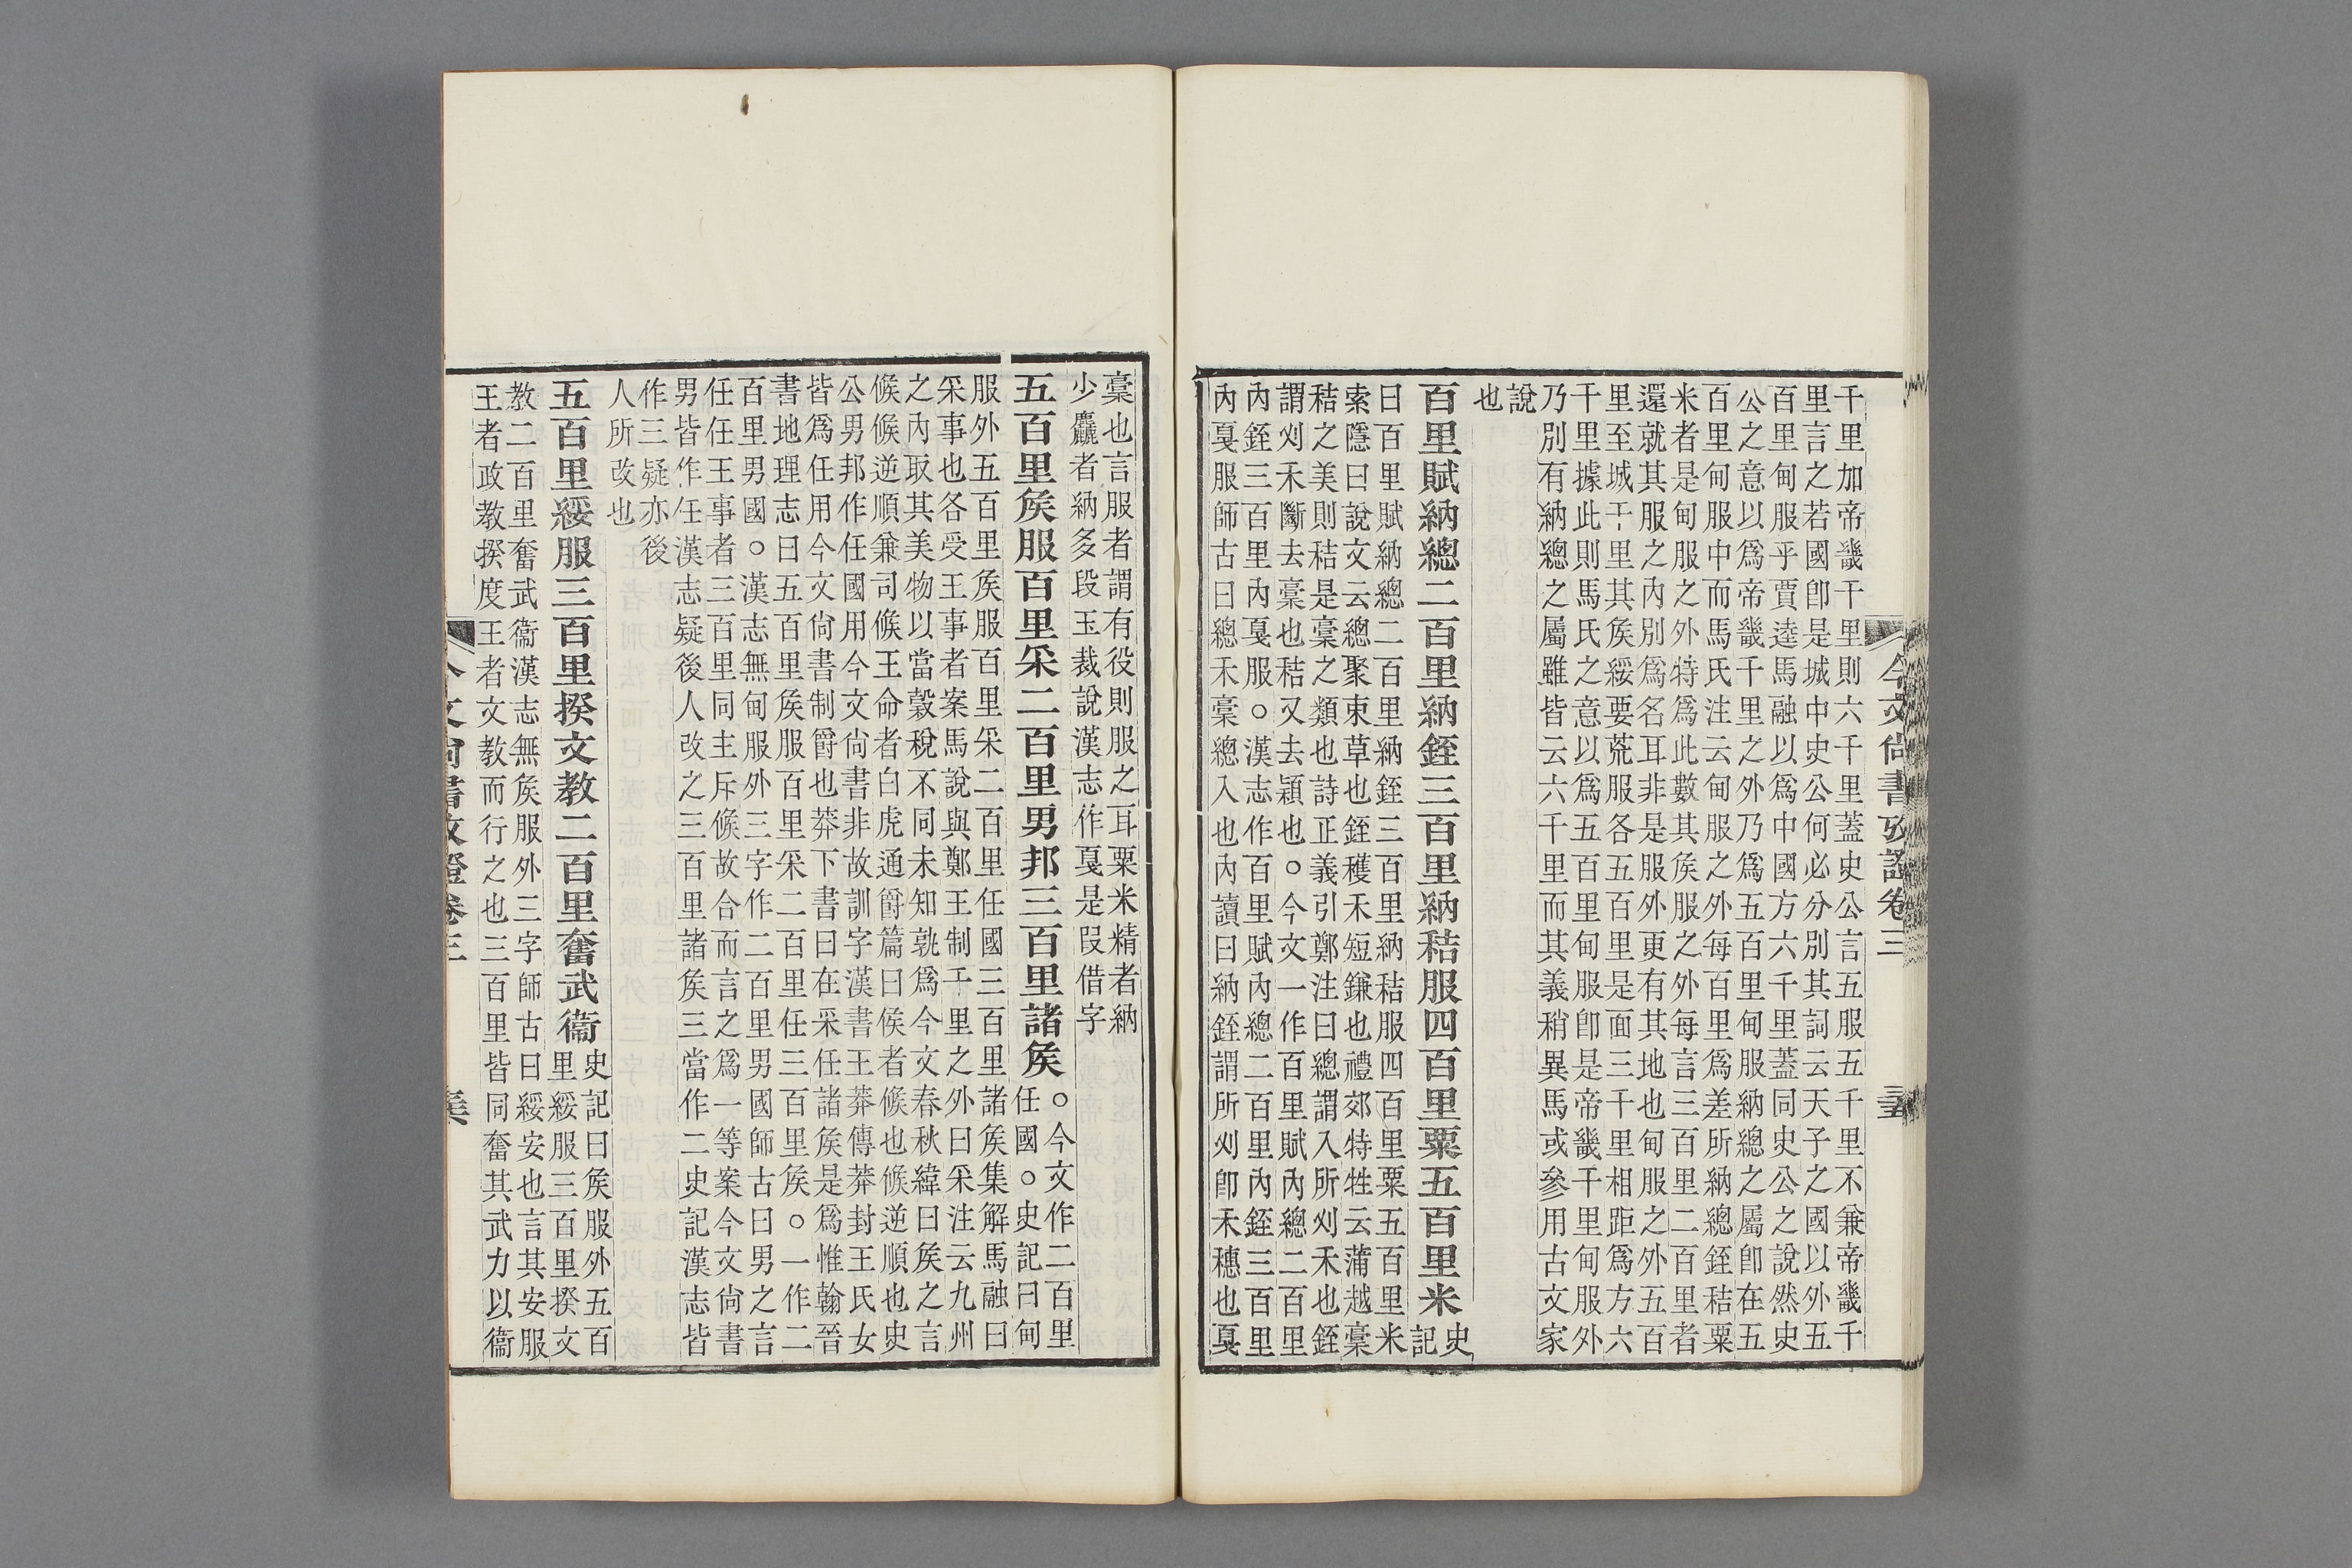 今文尚書攷證卷三
千里加帝畿千里則六千里蓋史公言五服五千里不兼帝畿千
里言之若國卽是城中史公何必分別其詞云天子之國以外五
百里甸服乎賈逵馬融以爲中國方六千里蓋同史公之說然史
公之意以爲帝畿千里之外乃爲五百里甸服納總之屬卽在五
百里甸服中而馬氏注云甸服之外每百里爲差所納總銍秸粟
米者是甸服之外特爲此數其矦服之外每言三百里二百里者
還就其服之內別爲名耳非是服外更有其地也甸服之外五百
里至城千里其矦綏要荒服各五百里是面三千里相距爲方六
千里據此則馬氏之意以爲五百里甸服卽是帝畿千里甸服外
乃別有納總之屬雖皆云六千里而其義稍異馬或參用古文家
說
也
百里賦納總二百里納銍三百里納秸服四百里粟五百里米史
記
曰百里賦納總二百里納銍三百里納秸服四百里粟五百里米
索隱曰說文云總聚束草也銍穫禾短鎌也禮郊特牲云蒲越稾
秸之美則秸是稾之類也詩正義引鄭注曰總謂入所刈禾也銍
謂刈禾斷去稾也秸又去穎也○今文一作百里賦內總二百里
內銍三百里內戛服○漢志作百里賦內總二百里內銍三百里
內戛服師古曰總禾稾總入也內讀曰納銍謂所刈卽禾穗也戛
稾也言服者謂有役則服之耳粟米精者納
少麤者納多段玉裁說漢志作戛是叚借字
五百里矦服百里采二百里男邦三百里諸矦○今文作二百里
任國○史記曰甸
服外五百里矦服百里采二百里任國三百里諸矦集解馬融曰
采事也各受王事者案馬說與鄭王制千里之外曰采注云九州
之內取其美物以當穀稅不同未知孰爲今文春秋緯曰矦之言
候候逆順兼司候王命者白虎通爵篇曰矦者候也候逆順也史
公男邦作任國用今文尚書非故訓字漢書王莽傳莽封王氏女
皆爲任用今文尚書制爵也莽下書曰在采任諸矦是爲惟翰晉
書地理志曰五百里矦服百里采二百里任三百里矦○一作二
百里男國○漢志無甸服外三字作二百里男國師古曰男之言
任任王事者三百里同主斥候故合而言之爲一等案今文尚書
男皆作任漢志疑後人改之三百里諸矦三當作二史記漢志皆
作三疑亦後
人所改也
五百里綏服三百里揆文教二百里奮武衞史記曰矦服外五百
里綏服三百里揆文
教二百里奮武衞漢志無矦服外三字師古曰綏安也言其安服
王者政教揆度王者文教而行之也三百里皆同奮其武力以衞